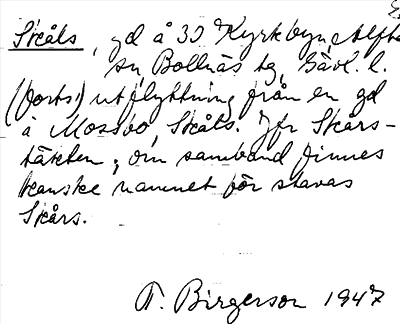 Skåls, gd å 30 Kyrkbyn, Alfta
sn, Bollnäs tg, Gävl. l.
(forts) utflyttning från en gd
å Mossbo, Skåls. Jfr Skårs-
täkten; om samband finnes
kanske namnet bör stavas
Skårs.
T. Birgerson 1947